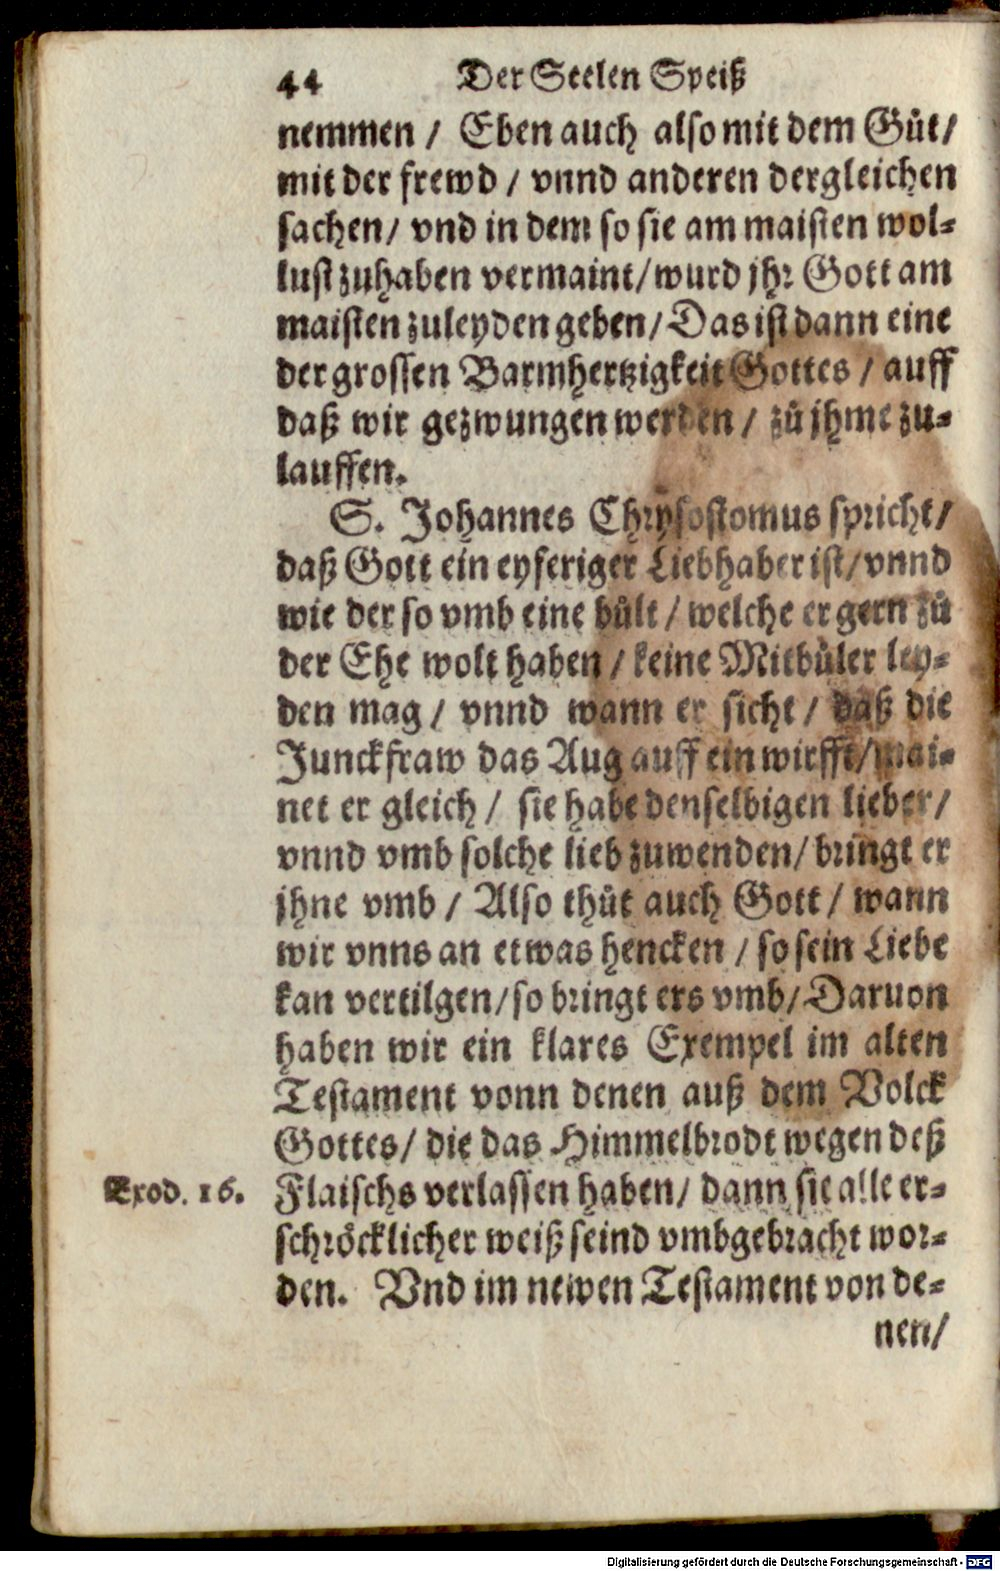 44 Der Seelen Speiß
nemmen / Eben auch also mit dem Gůt /
mit der frewd / vnnd anderen dergleichen
sachen / vnd in dem so sie am maisten wol-
lust zuhaben vermaint / wurd jhr Gott am
maisten zuleyden geben / Das ist dann eine
der grossen Barmhertzigkeit Gottes / auff
daß wir gezwungen werden / zů jhme zu-
lauffen.
S. Johannes Chrysostomus spricht /
daß Gott ein eyferiger Liebhaber ist / vnnd
wie der so vmb eine bůlt / welche er gern zů
der Ehe wolt haben / keine Mitbůler ley-
den mag / vnnd wann er sicht / daß die
Junckfraw das Aug auff ein wirfft / mai-
net er gleich / sie habe denselbigen lieber /
vnnd vmb solche lieb zuwenden / bringt er
jhne vmb / Also thůt auch Gott / wann
wir vnns an etwas hencken / so sein Liebe
kan vertilgen / so bringt ers vmb / Daruon
haben wir ein klares Exempel im alten
Testament vonn denen auß dem Volck
Gottes / die das Himmelbrodt wegen deß
Exod. 16. Flaischs verlassen haben / dann sie alle er-
schröcklicher weiß seind vmbgebracht wor-
den. Vnd im newen Testament von de-
nen /
Digitalisierung gefördert durch die Deutsche Forschungsgemeinschaft - DFG